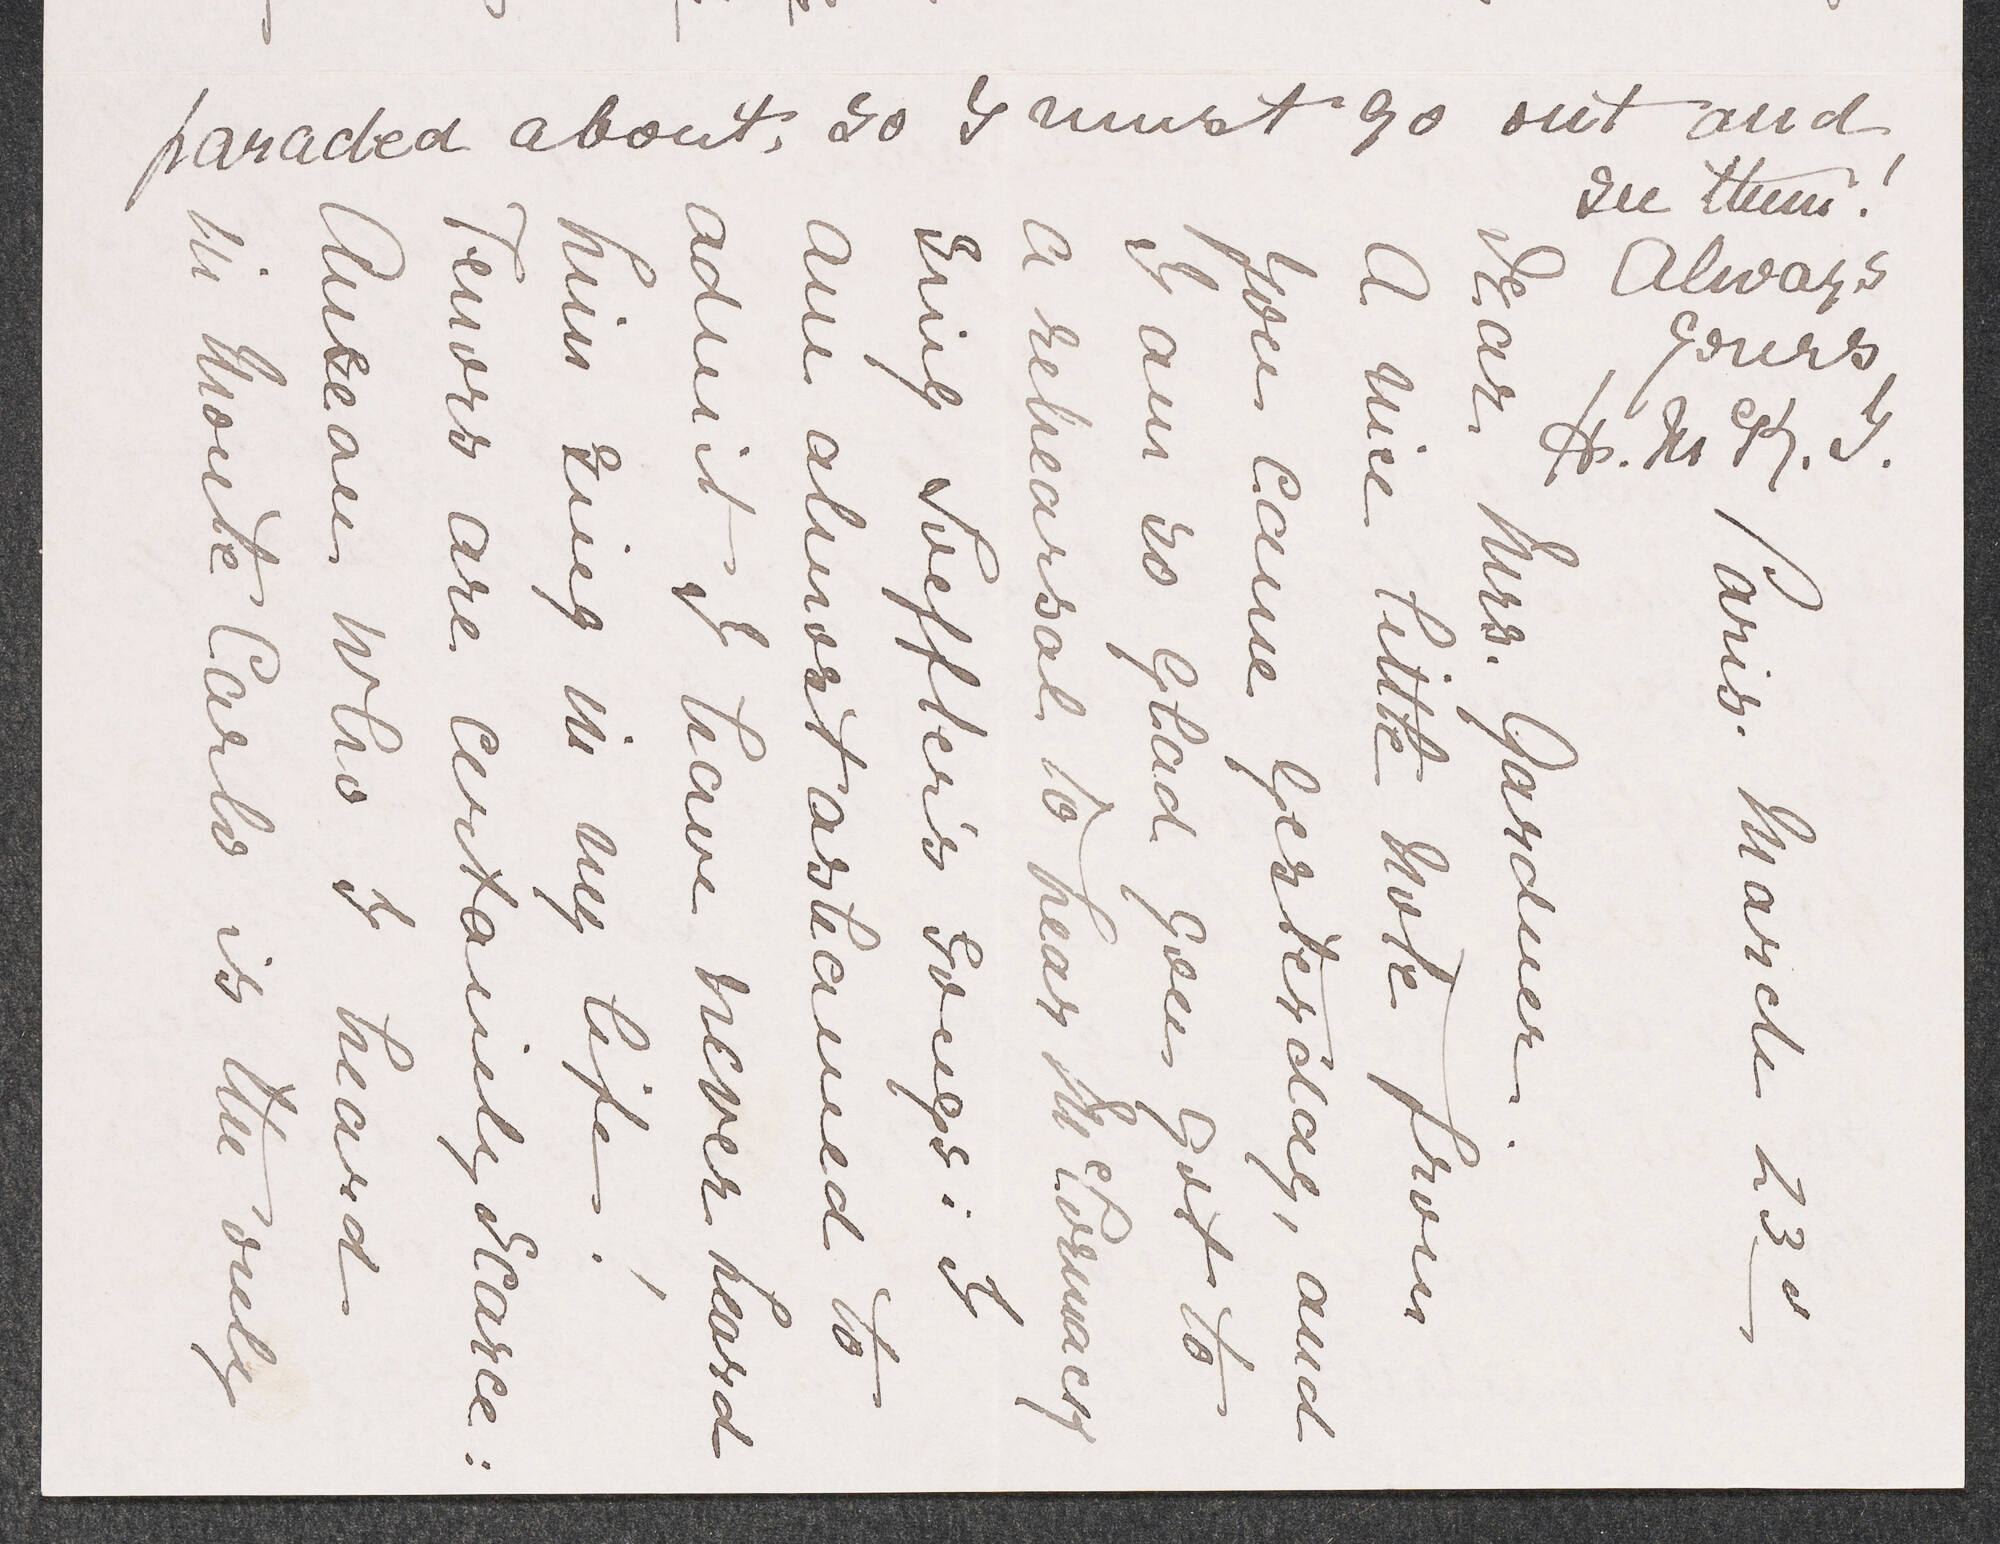 paraded about, so I must go out and
see them!
Always
yours,
Paris. March 23d
Dear Mrs. Gardner.
A nice little note from
you came yesterday, and
I am so glad you got to
a rehearsal to hear McCormack
sing Loeffler's songs: I
am almost ashamed to
admit I have never heard
him sing in my life!
Tenors are certainly scarce:
Anseau who I heard
in Monte Carlo is the only